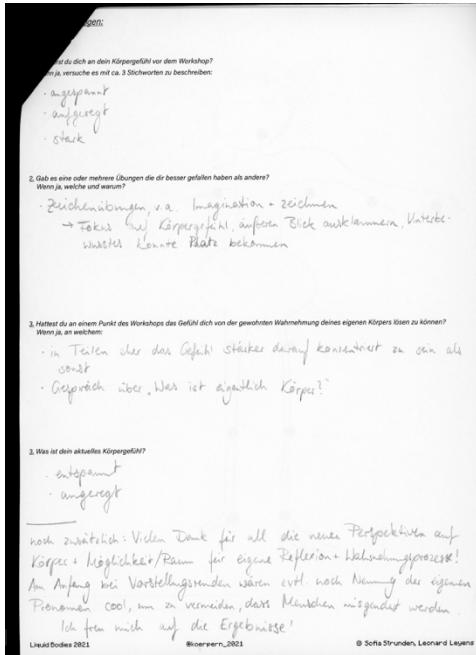 gen:
st du dich an dein Körpergefühl vor dem Workshop?
nn ja, versuche es mit ca. 3 Stichworten zu beschreiben:
· angespannt
· aufgeregt
· stark
2. Gab es eine oder mehrere Übungen die dir besser gefallen haben als andere?
Wenn ja, welche und warum?
· Zeichenübungen, v.a. Imagination + zeichnen
→ Fokus auf Körpergefühl, äußeren Blick ausklammern, Unterbe-
wusstes konnte Platz bekommen
3. Hattest du an einem Punkt des Workshops das Gefühl dich von der gewohnten Wahrnehmung deines eigenen Körpers lösen zu können?
Wenn ja, an welchem:
· in Teilen eher das Gefühl stärker darauf konzentriert zu sein als
sonst
· Gespräch über „Was ist eigentlich Körper?"
3. Was ist dein aktuelles Körpergefühl?
· entspannt
· angeregt
noch zusätzlich: Vielen Dank für all die neuen Perspektiven auf
Körper + Möglichkeit/Raum für eigene Reflexion + Wahrnehmungsprozesse!
Am Anfang bei Vorstellungsrunden wären evtl. noch Nennung der eigenen
Pronomen cool, um zu vermeiden, dass Menschen misgendert werden.
Ich freu mich auf die Ergebnisse!
Liquid Bodies 2021 @koerpern_2021 © Sofia Strunden, Leonard Leyens